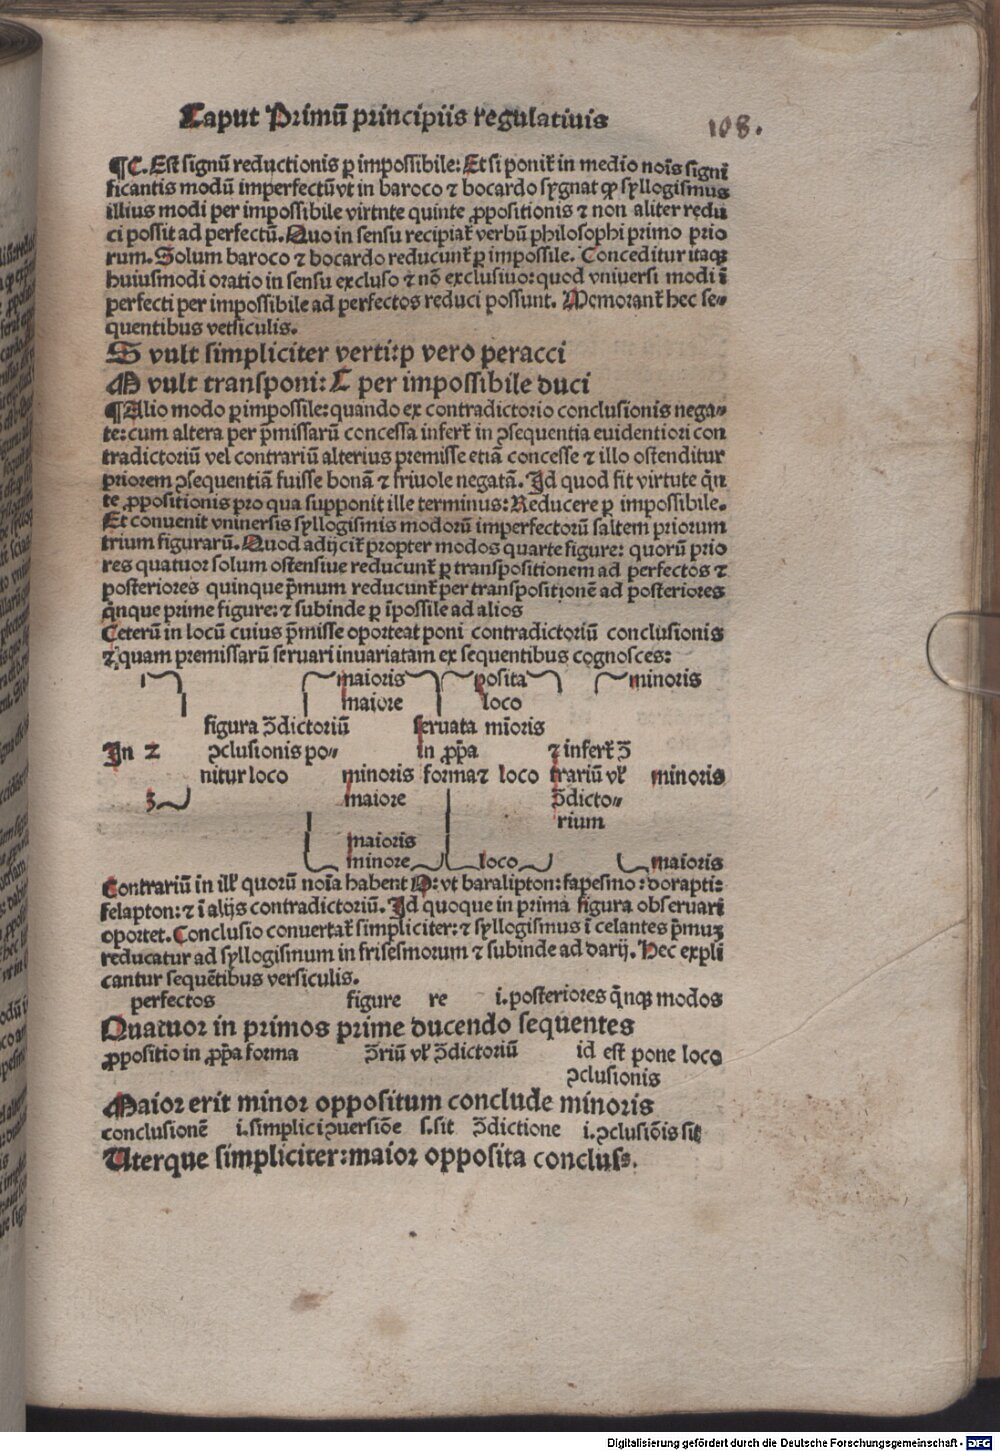 Caput Primū principiis regulatiuis
108.
¶C. Est signū reductionis ꝑ impossibile: Et si poniť in medio noīs signi
ficantis modū imperfectū vt in baroco ⁊ bocardo sygnat ꝙ syllogismus
illius modi per impossibile virtnte quinte ꝓpositionis ⁊ non aliter redu
ci possit ad perfectū. Quo in sensu recipiať verbū philosophi primo prio
rum. Solum baroco ⁊ bocardo reducunť ꝑ impossile. Conceditur itaqꝫ
huiusmodi oratio in sensu excluso ⁊ nō exclusiuo: quod vniuersi modi ī
perfecti per impossibile ad perfectos reduci possunt. Memoranť hec se⸗
quentibus versiculis.
S vult simpliciter verti: p vero peracci
M vult transponi: C per impossibile duci
¶Alio modo ꝑ impossile: quando ex contradictorio conclusionis nega⸗
te: cum altera per p̄missarū concessa inferť in ꝯsequentia euidentiori con
tradictoriū vel contrariū alterius premisse etiā concesse ⁊ illo ostenditur
priorem ꝯsequentiā fuisse bonā ⁊ friuole negatā. Id quod fit virtute q̄n
te ꝓpositionis pro qua supponit ille terminus: Reducere ꝑ impossibile.
Et conuenit vniuersis syllogismis modorū imperfectorū saltem priorum
trium figurarū. Quod adijciť propter modos quarte figure: quorū prio
res quatuor solum ostensiue reducunť ꝑ transpositionem ad perfectos ⁊
posteriores quinque p̄mum reducunť per transpositionē ad posteriores
q̄nque prime figure: ⁊ subinde ꝑ īpossile ad alios
Ceterū in locū cuius p̄misse oporteat poni contradictoriū conclusionis
⁊ quam premissarū seruari inuariatam ex sequentibus cognosces:
1 maioris posita minoris
maiore loco
figura ꝯ̄dictoriū seruata mīoris
In 2 ꝯclusionis po⸗ in ꝓp̄a ⁊ inferť ꝯ̄
nitur loco minoris forma⁊ loco trariū vľ minoris
3 maiore ꝯ̄dicto⸗
rium
maioris
minore loco maioris
Contrariū in ilľ quorū noīa habent P: vt baralipton: fapesmo: darapti:
felapton: ⁊ ī alijs contradictoriū. Id quoque in prima figura obseruari
oportet. Conclusio conuertať simpliciter: ⁊ syllogismus ī celantes p̄muꝫ
reducatur ad syllogismum in frisesmorum ⁊ subinde ad darij. Hec expli
cantur sequētibus versiculis.
perfectos figure re i. posteriores q̄nqꝫ modos
Quatuor in primos prime ducendo sequentes
ꝓpositio in ꝓp̄a forma ꝯ̄riū vľ ꝯ̄dictoriū id est pone loco
ꝯclusionis
Maior erit minor oppositum conclude minoris
conclusionē i. simplici ꝯuersiōe s. sit ꝯ̄dictione i. ꝯclusiōis sit
Uterque simpliciter: maior opposita conclus⸗.
Digitalisierung gefördert durch die Deutsche Forschungsgemeinschaft - DFG